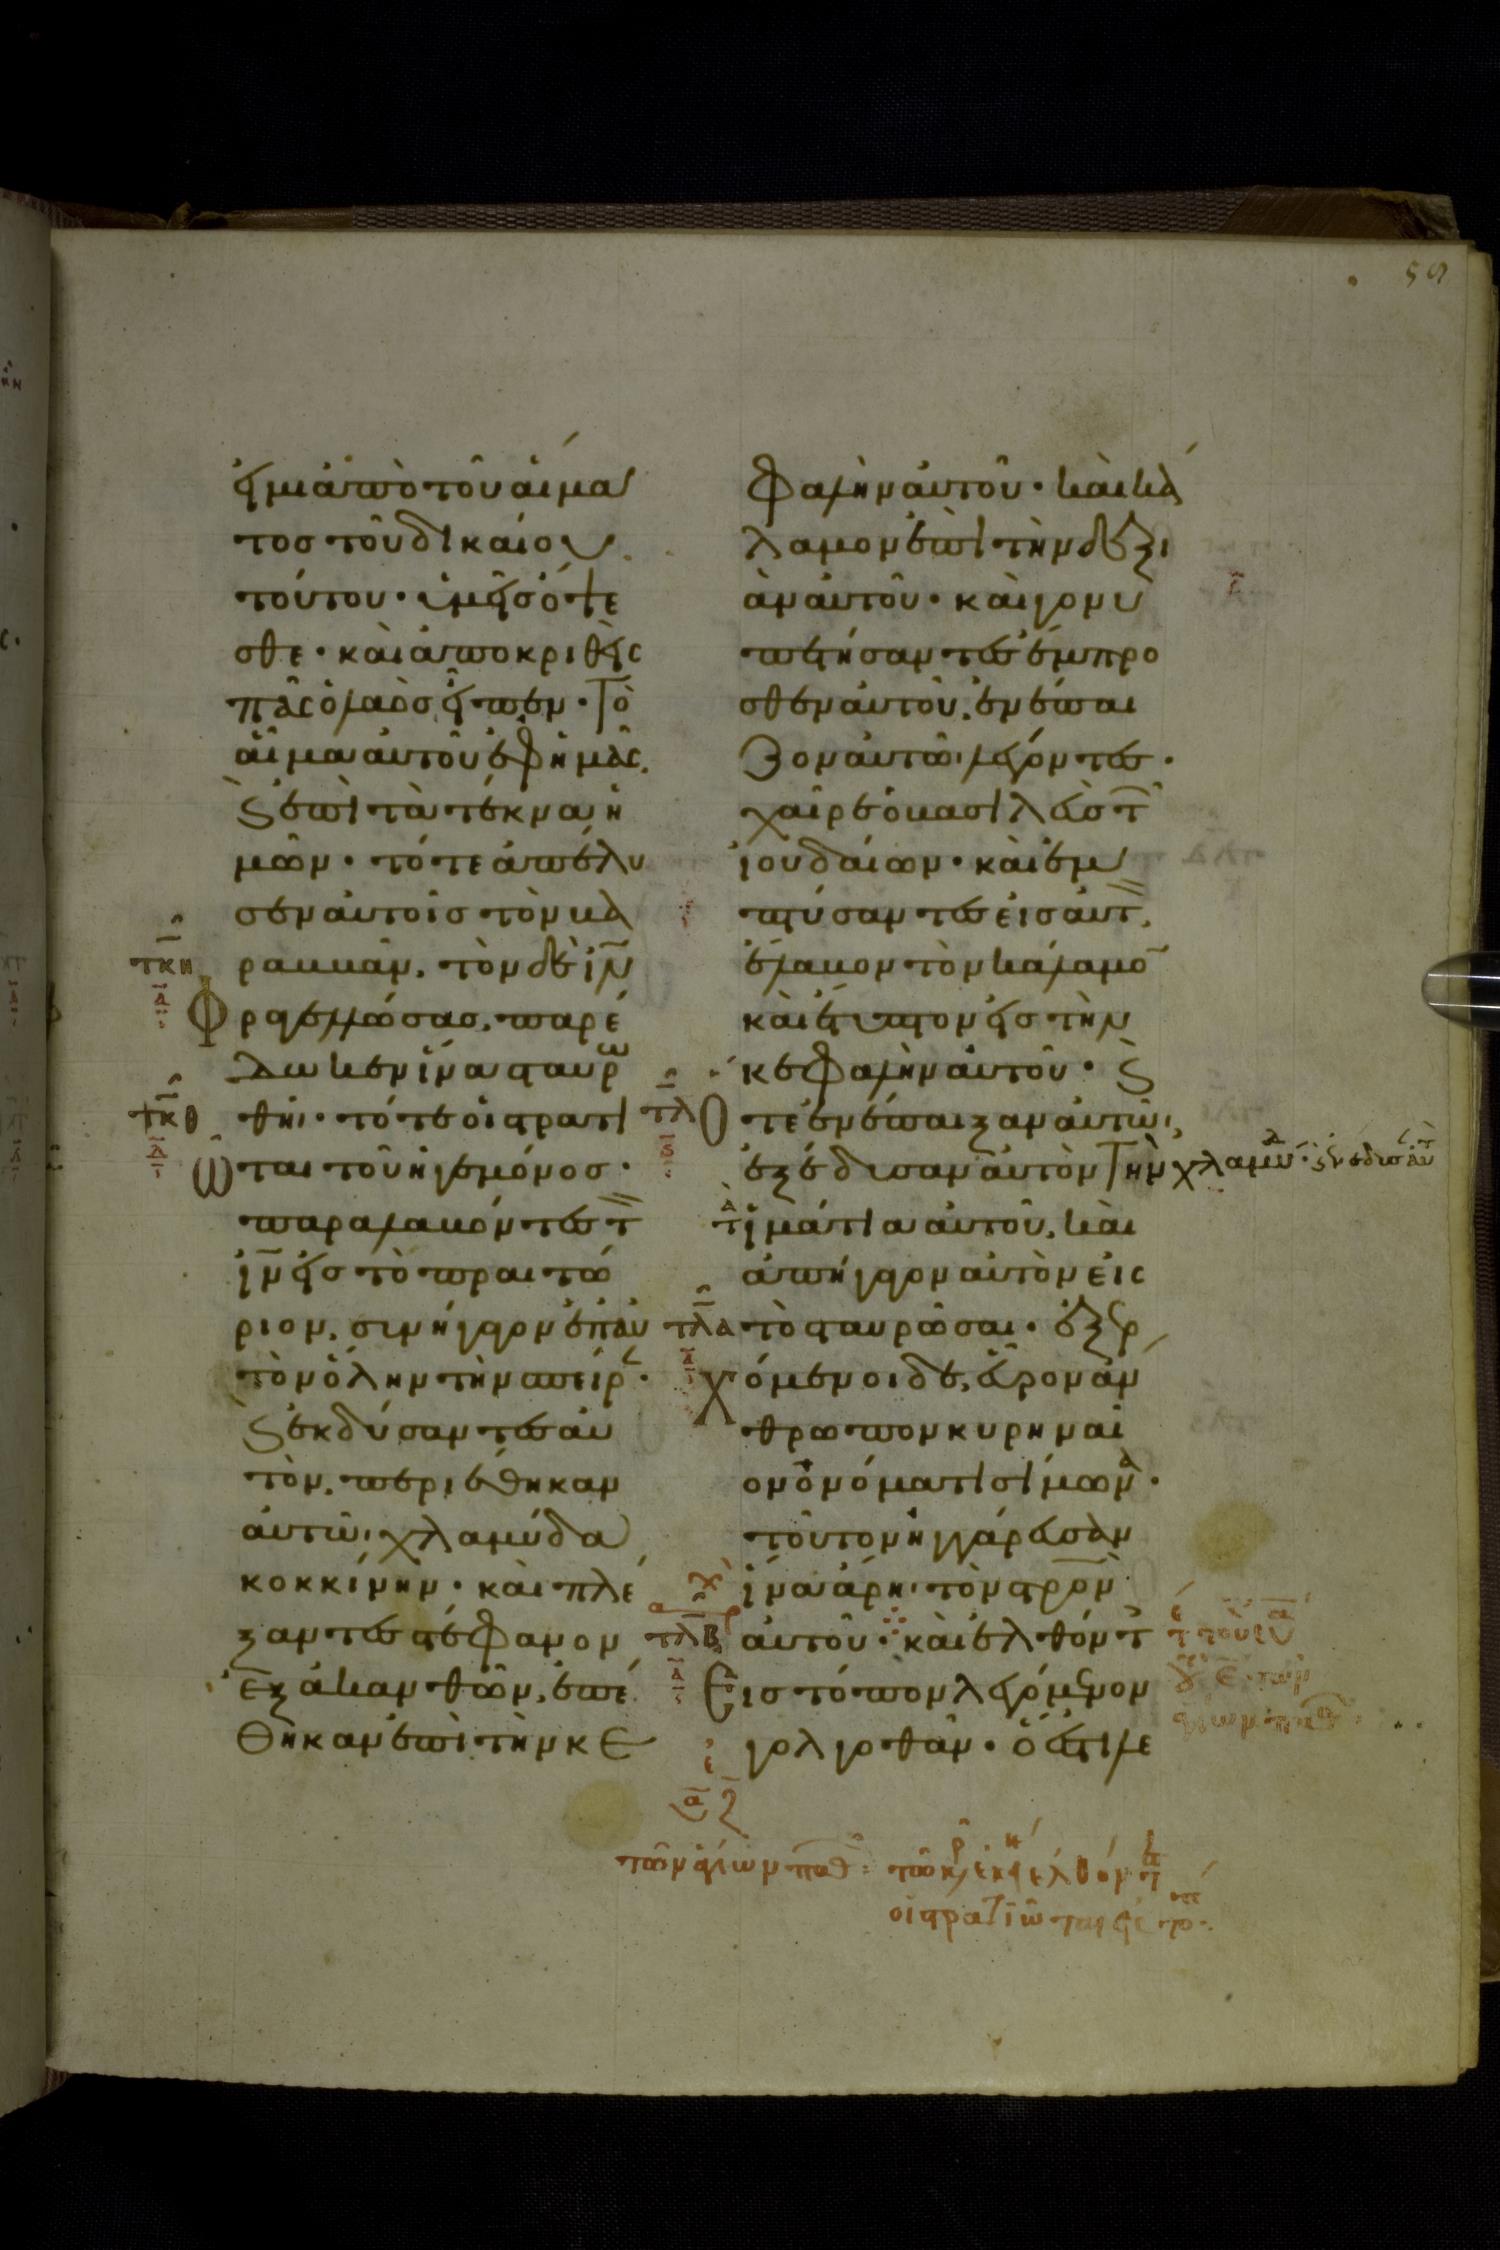 59
εἰμι ἀπὸ τοῦ αἵμα
τοσ τοῦ δικαίου
τούτου · ὑμεῖσ ὄψε
σθε · καὶ ἀποκριθεὶς
πᾶς ὁ λαὸσ εἶπεν · Τὸ
αἷμα αὐτοῦ ἐφ ημᾶς.
Ϛ ἐπὶ τὰ τέκνα ἡ
μῶν · τότε ἀπέλυ
σεν αὐτοῖσ τὸν βα
ραββᾶν. τὸν δὲ ἰν̅
φραγελλώσασ, παρέ
δωκεν ἵνα σταυρω
θῆι · τότε οἱ στρατι
ῶται τοῦ ἡγεμόνοσ ·
παραλαβόντεσ τ
ἰν̅ εἰσ τὸ πραιτώ
ριον, συνήγαγον ἐπ αὐ
τὸν ὅλην τὴν σπεῖρ ·
Ϛ ἐκδύσαντεσ αὐ
τὸν, περιέθηκαν
αὐτῶι χλαμύδα
κοκκίνην · καὶ πλέ
ξαντεσ στέφανον
ἐξ ἀκανθῶν, ἐπέ
θηκαν ἐπὶ τὴν κε
φαλὴν αὐτοῦ · καὶ κά
λαμον ἐπὶ τὴν δεξι
ὰν αὐτοῦ · καὶ γονυ
πετήσαντεσ ἔμπρο
σθεν αὐτοῦ, ἐνέπαι
ζον αὐτῶι λέγοντεσ ·
χαῖρε ὁ βασιλεὺσ τ
ἰουδαίων · καὶ ἐμ
πτύσαντεσ εἰσ αὐτ,
ἔλαβον τὸν κάλαμο̅
καὶ ἔτυπτον εἰσ τὴν
κεφαλὴν αὐτοῦ · Ϛ
ὅτε ἐνέπαιξαν αὐτῶι,
ἐξέδυσαν αὐτὸν Τὴν χλαμύδ · Ϛ ἐνέδυσ αὐτ
τὰ ἱμάτια αὐτοῦ, καὶ
ἀπήγαγον αὐτὸν εἰς
τὸ σταυρῶσαι · ἐξερ
χόμενοι δὲ, εὗρον ἄν
θρωπον κυρηναῖ
ον ὀνόματι σίμωνα ·
τοῦτον ἠγγάρευσαν
ἵνα ἄρη τὸν στρο̅ν
αὐτοῦ · καὶ ἐλθόντ
εισ τόπον λεγόμενον
γολγοθᾶν · ὅ ἐστι λε
τκη
τκθ
τλ
τλα
τλβ
τῶν ἁγίων παθ :